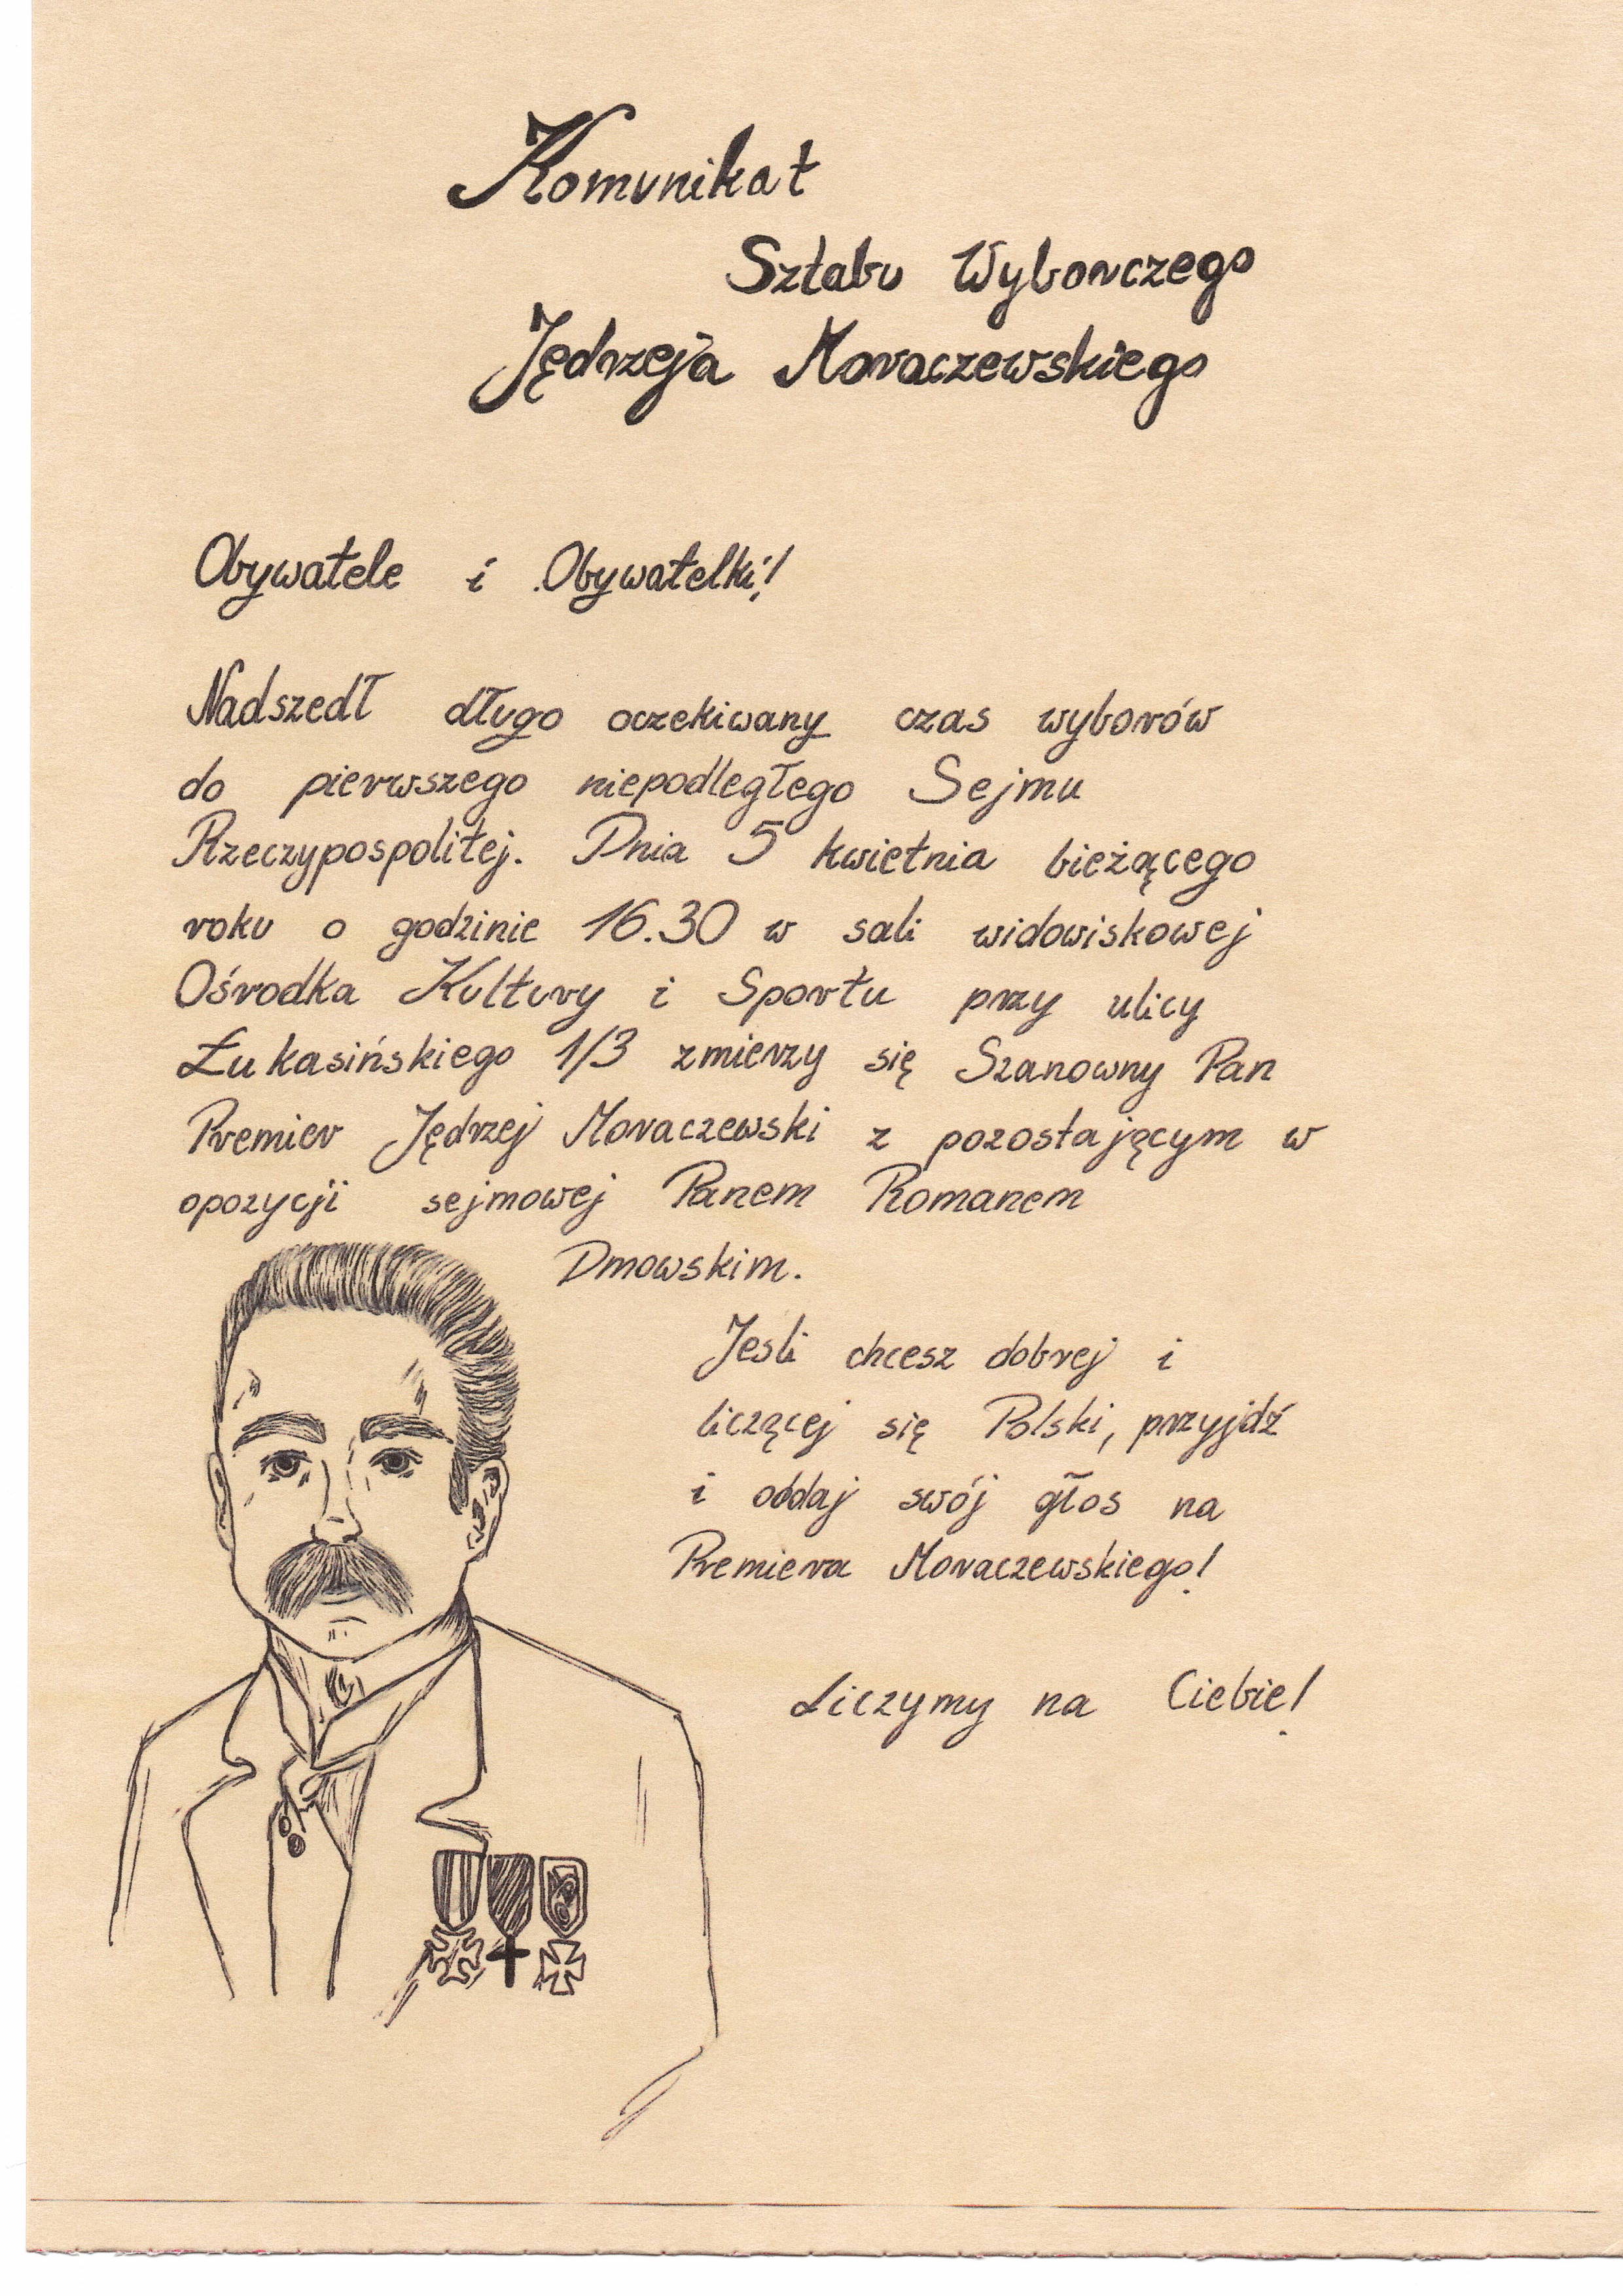 Komunikat
Sztabu Wyborczego
Jędrzeja Moraczewskiego
Obywatele i Obywatelki!
Nadszedł długo oczekiwany czas wyborów
do pierwszego niepodległego Sejmu
Rzeczypospolitej. Dnia 5 kwietnia bieżącego
roku o godzinie 16.30 w sali widowiskowej
Ośrodka Kultury i Sportu przy ulicy
Łukasińskiego 1/3 zmierzy się Szanowny Pan
Premier Jędrzej Moraczewski z pozostającym w
opozycji sejmowej Panem Romanem
Dmowskim.
Jeśli chcesz dobrej i
liczącej się Polski, przyjdź
i oddaj swój głos na
Premiera Moraczewskiego!
Liczymy na Ciebie!